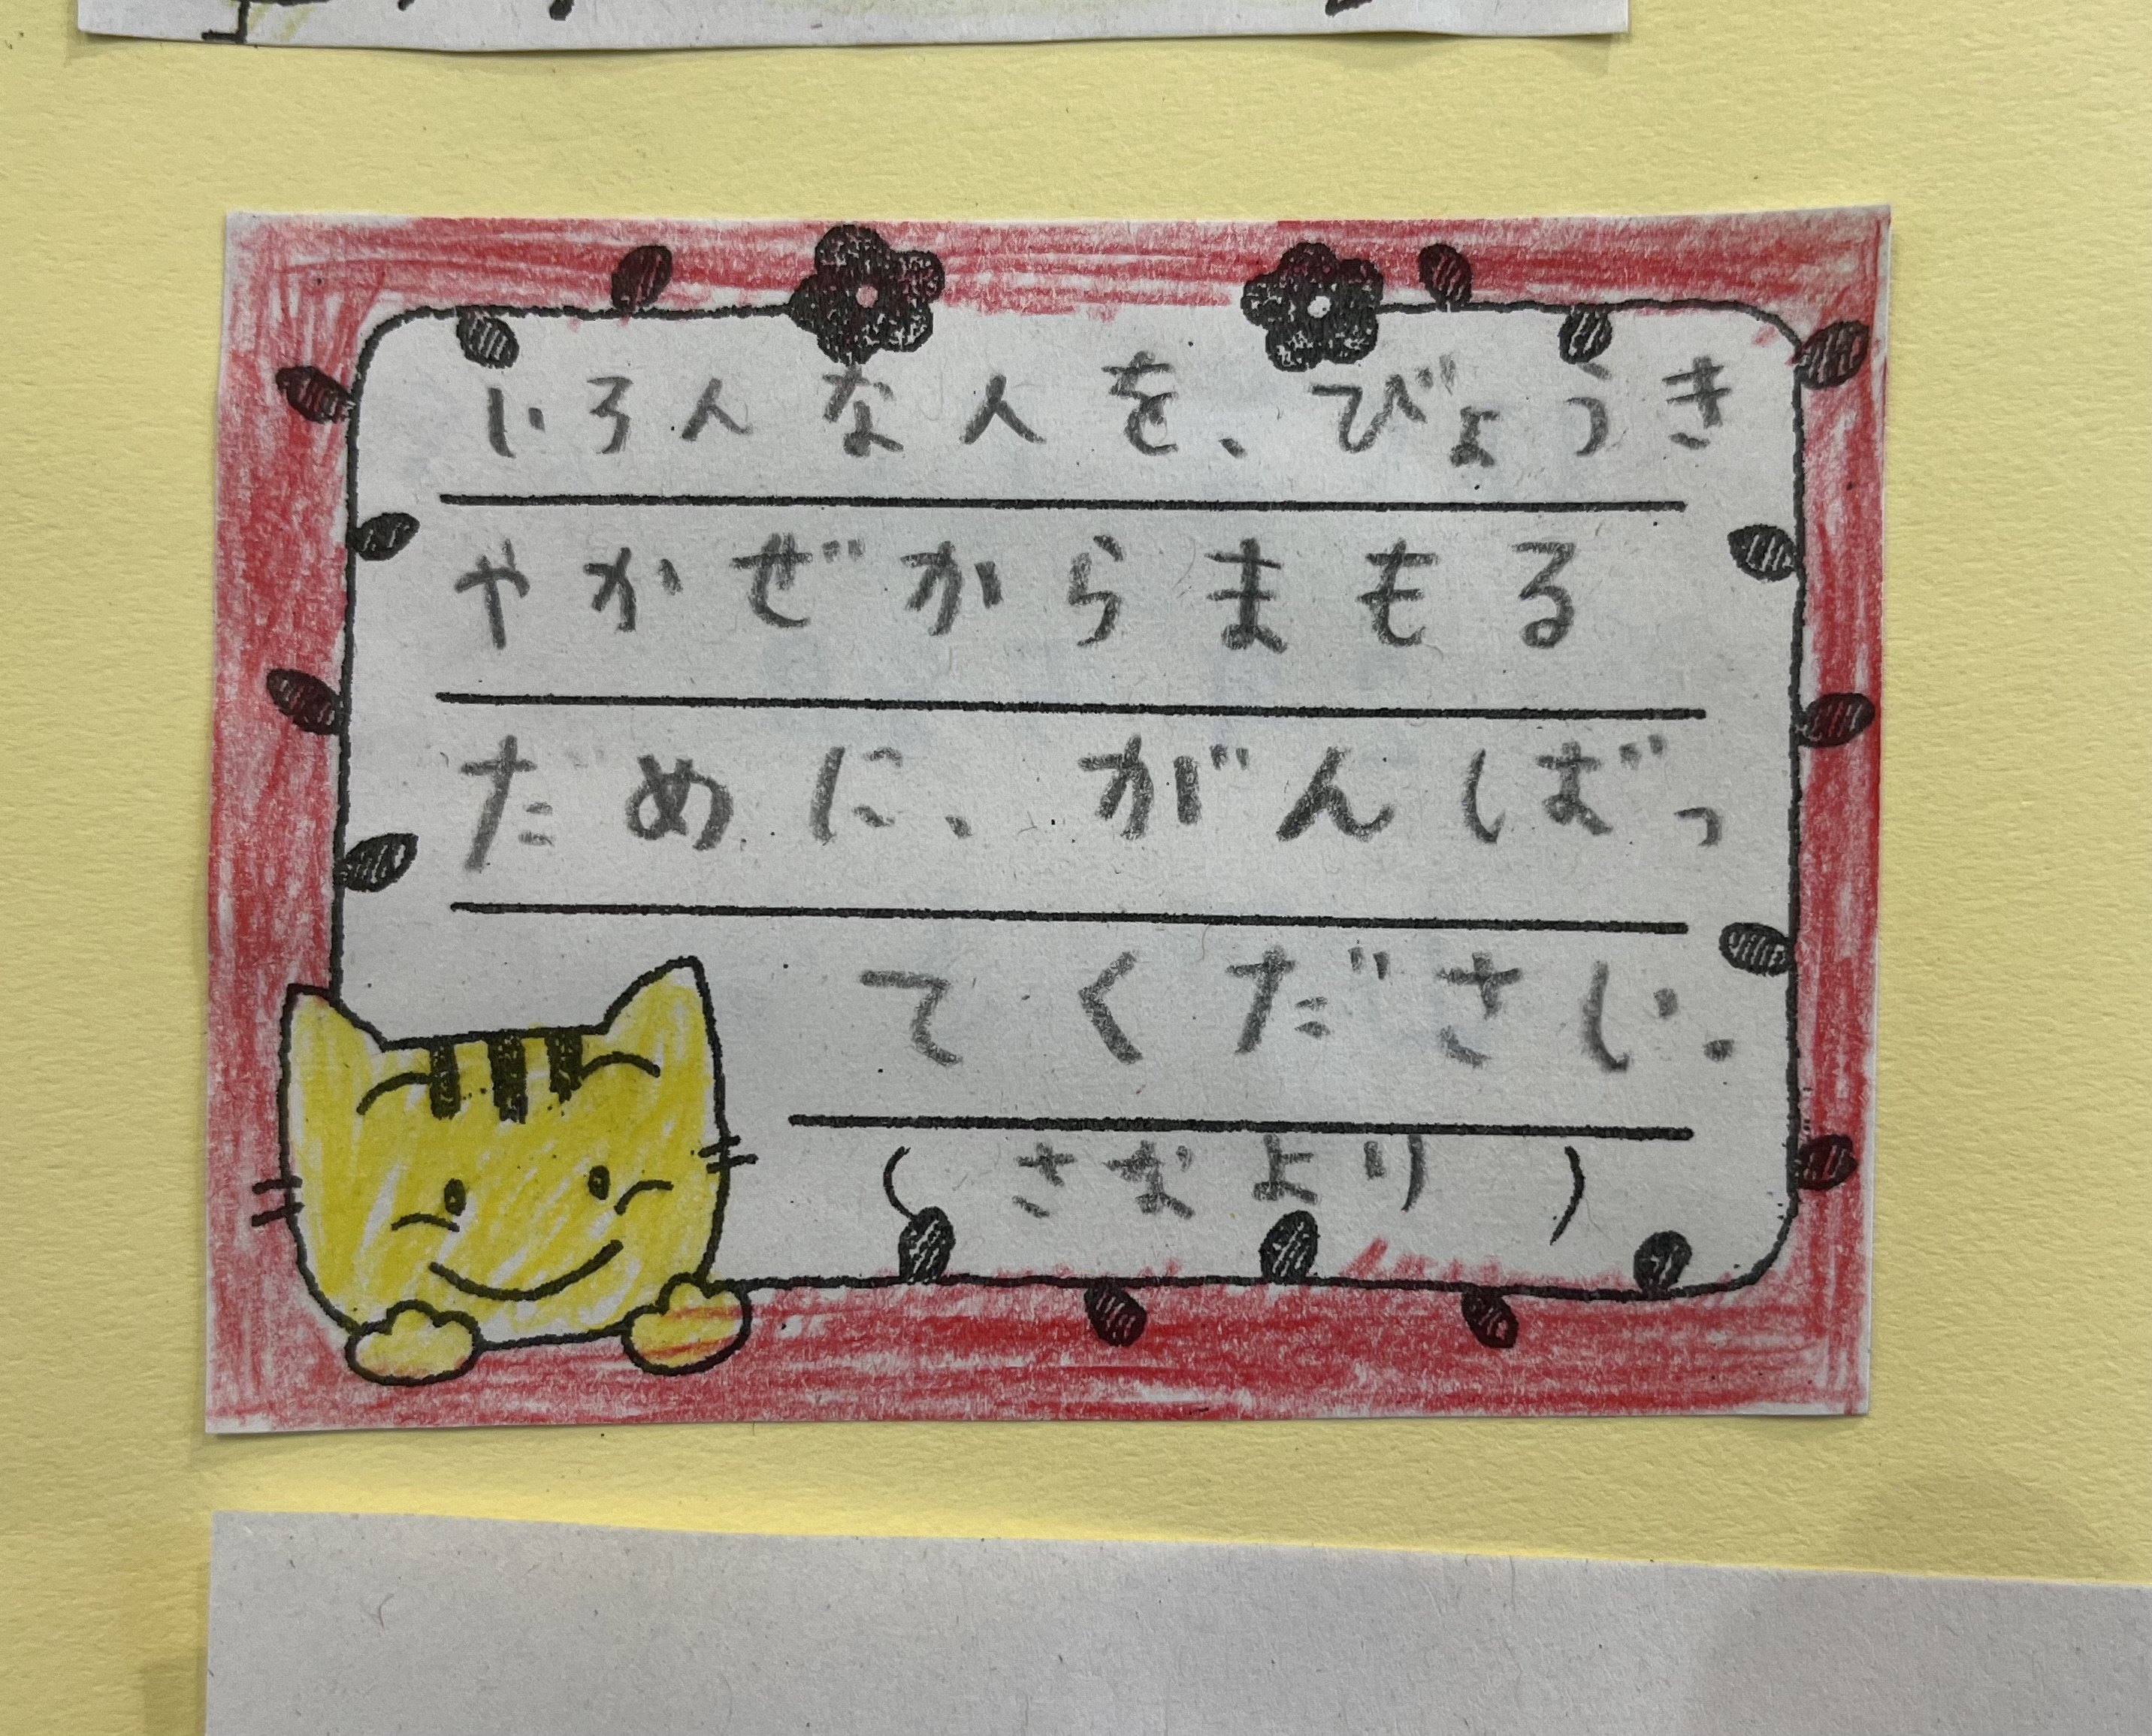 いろんな人を、びょうき
やかぜからまもる
ために、がんばっ
てください.
(さなより)